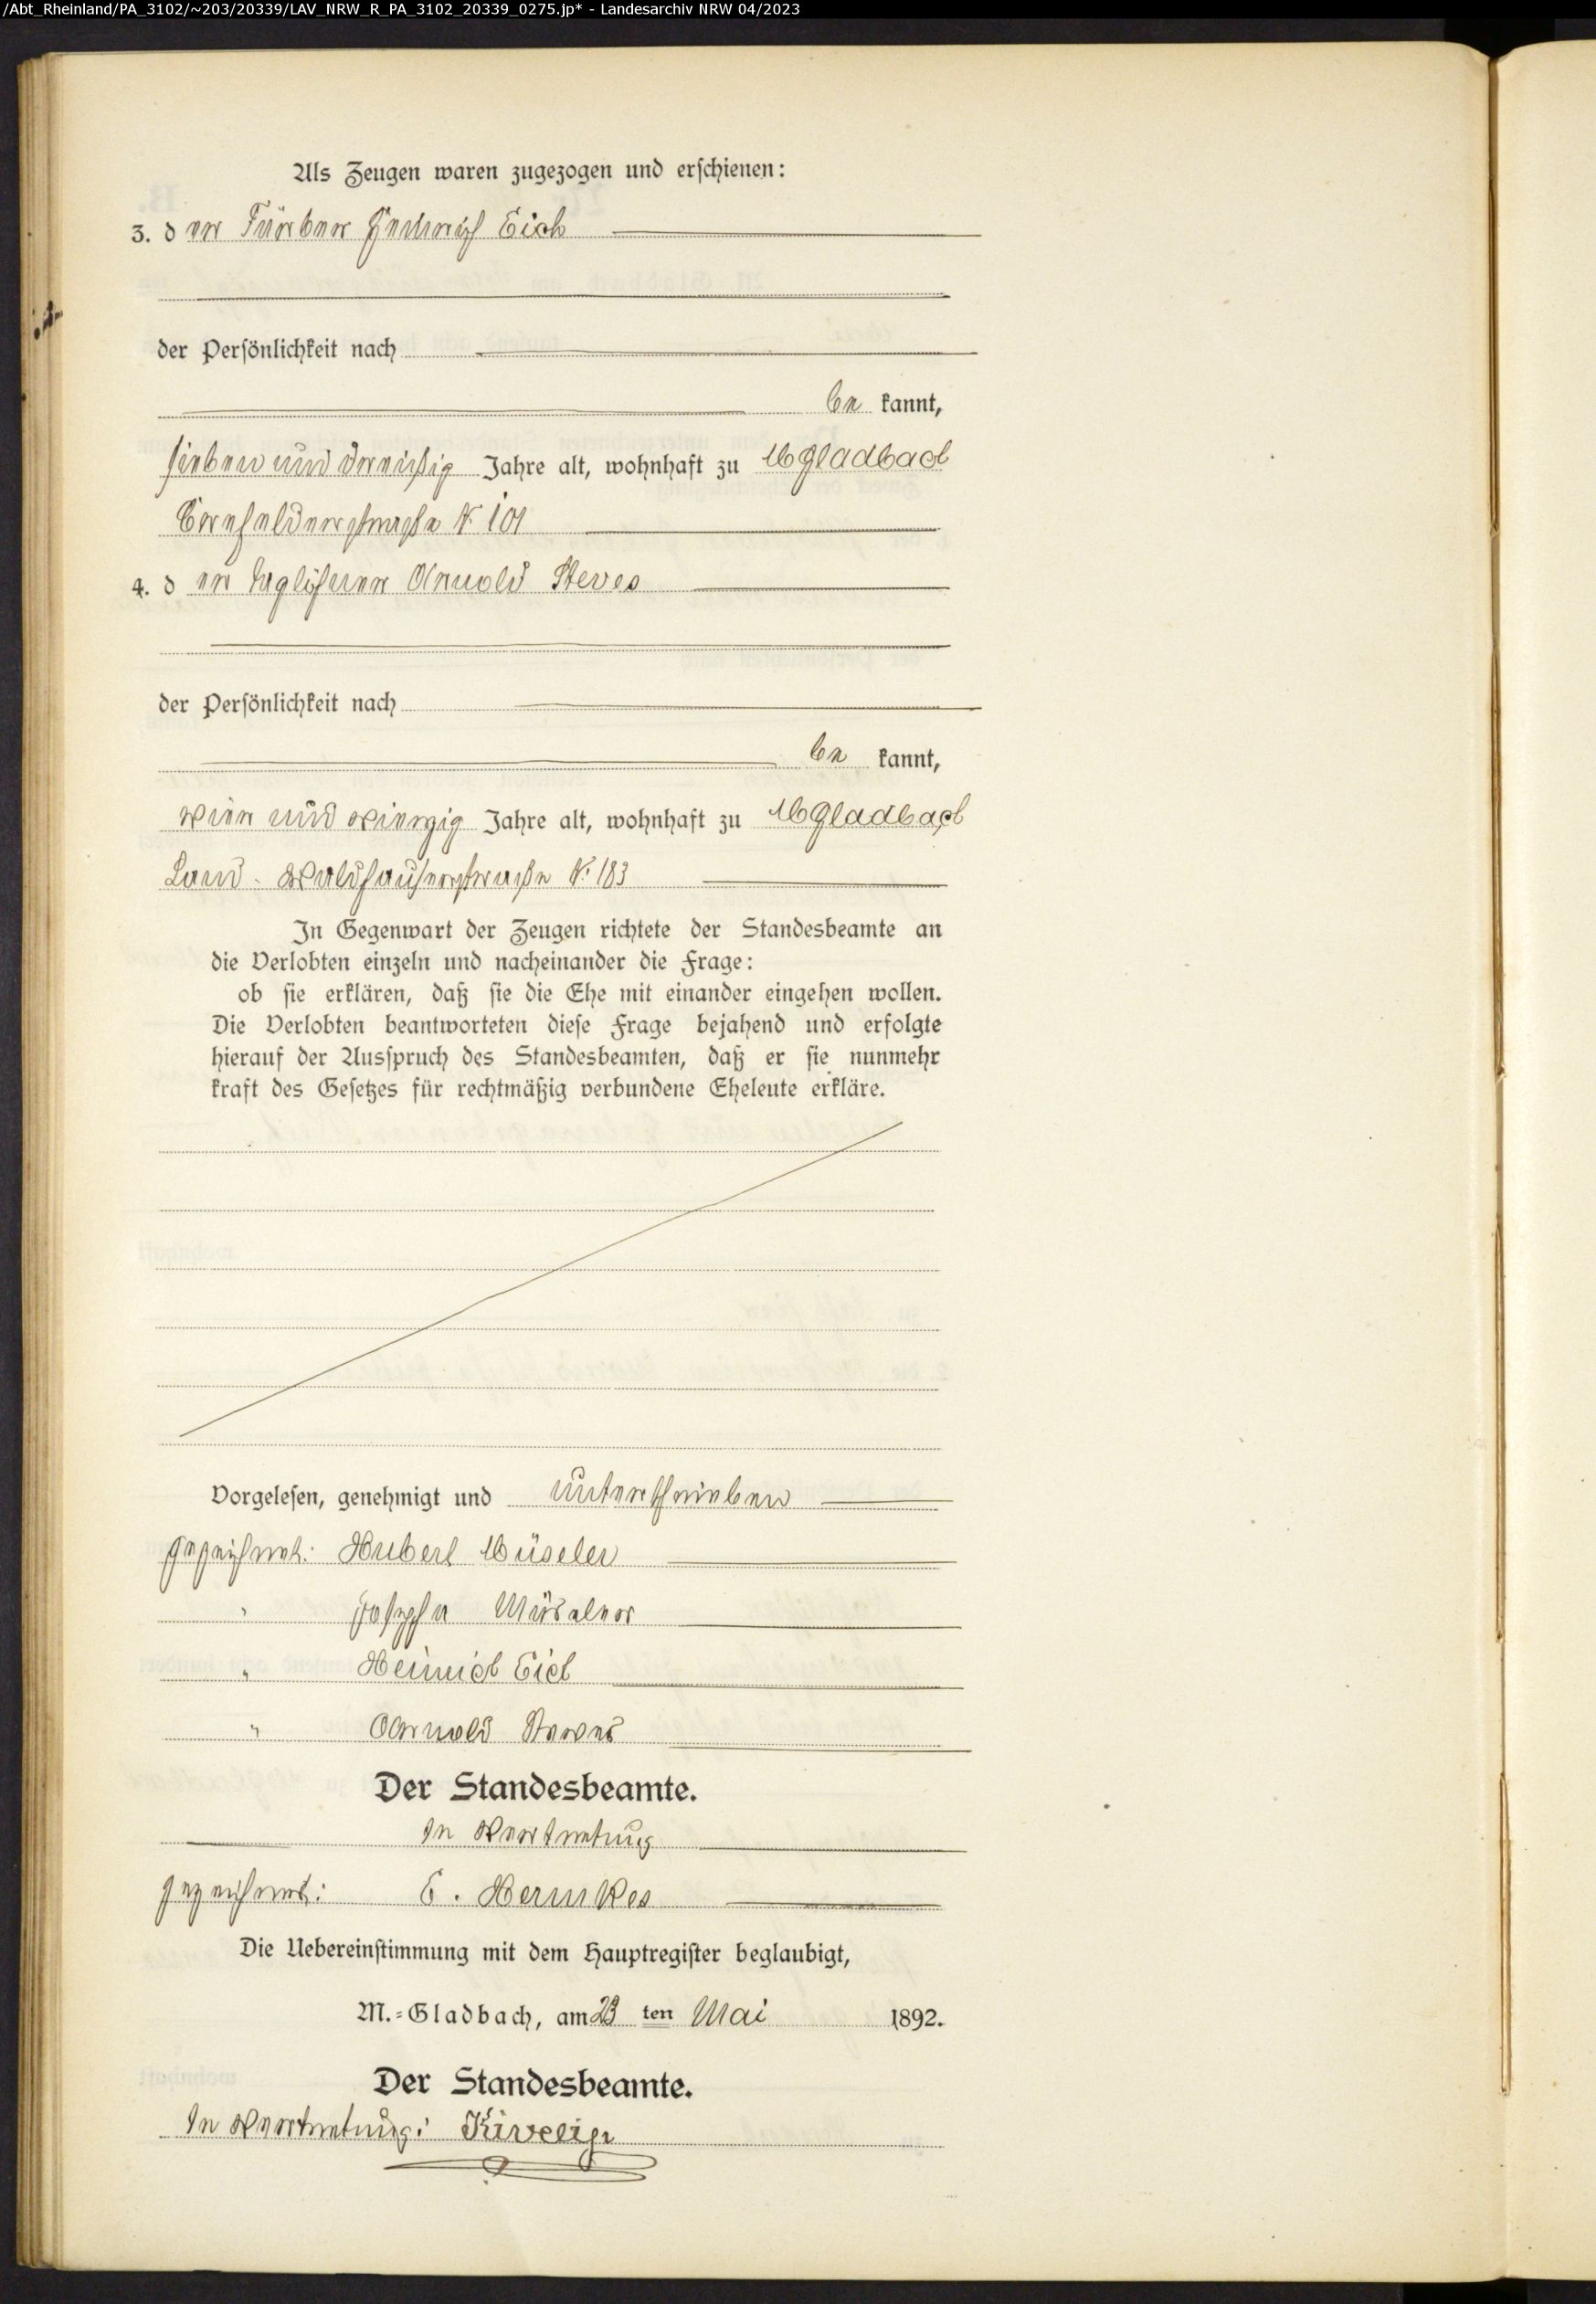 /Abt_Rheinland/PA_3102/~203/20339/LAV_NRW_R_PA_3102_20339_0275.jp* - Landesarchiv NRW 04/2023
Als Zeugen waren zugezogen und erschienen:
3. d er Färber Heinrich Eich
der Persönlichkeit nach
be kannt,
sieben und dreißig Jahre alt, wohnhaft zu MGladbach
Crefelderstraße N. 101
4. d er Taglöhner Arnold Steves
der Persönlichkeit nach
be kannt,
vier und vierzig Jahre alt, wohnhaft zu MGladbach
Land. Waldhauserstraße N. 183
In Gegenwart der Zeugen richtete der Standesbeamte an
die Verlobten einzeln und nacheinander die Frage:
ob sie erklären, daß sie die Ehe mit einander eingehen wollen.
Die Verlobten beantworteten diese Frage bejahend und erfolgte
hierauf der Ausspruch des Standesbeamten, daß er sie nunmehr
kraft des Gesetzes für rechtmäßig verbundene Eheleute erkläre.
Vorgelesen, genehmigt und unterschrieben
gezeichnet: Hubert Müseler
" Josepha Müseler
" Heinrich Eich
" Arnold Steves
Der Standesbeamte.
In Vertretung
gezeichnet: C. Hermkes
Die Uebereinstimmung mit dem Hauptregister beglaubigt,
M.-Gladbach, am 23 ten Mai 1892.
Der Standesbeamte.
In Vertretung: